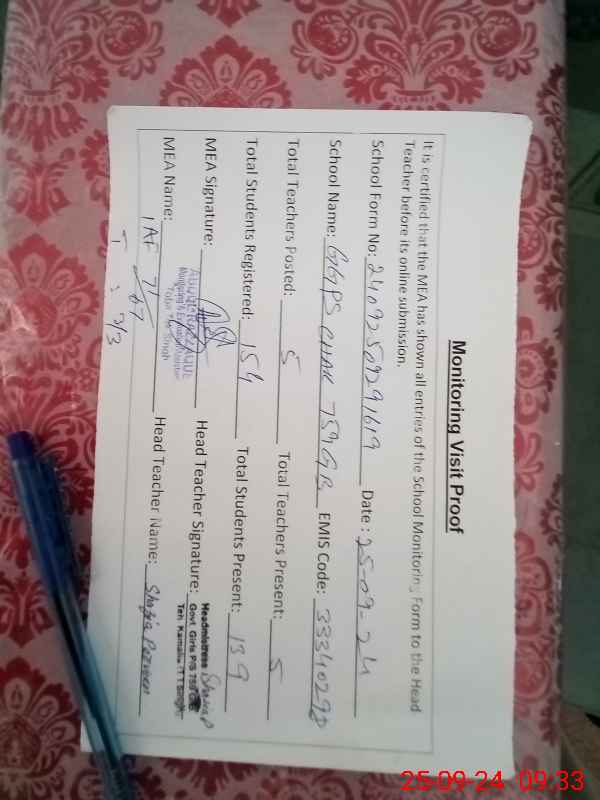 Monitoring Visit Proof
It is certified that the MEA has shown all entries of the School Monitoring Form to the Head
Teacher before its online submission.
School Form No: 2409250929 1619 Date: 25-09-24
School Name: GGPS CHAK 759 GB EMIS Code: 33340298
Total Teachers Posted: 5 Total Teachers Present: 5
Total Students Registered: 154 Total Students Present: 139
MEA Signature: Head Teacher Signature: Shazia P
Headmistress
Govt. Girls P/S 759
Teh. Kamalia
MEA Name: Head Teacher Name: Shazia Parveen
25-09-24 09:33